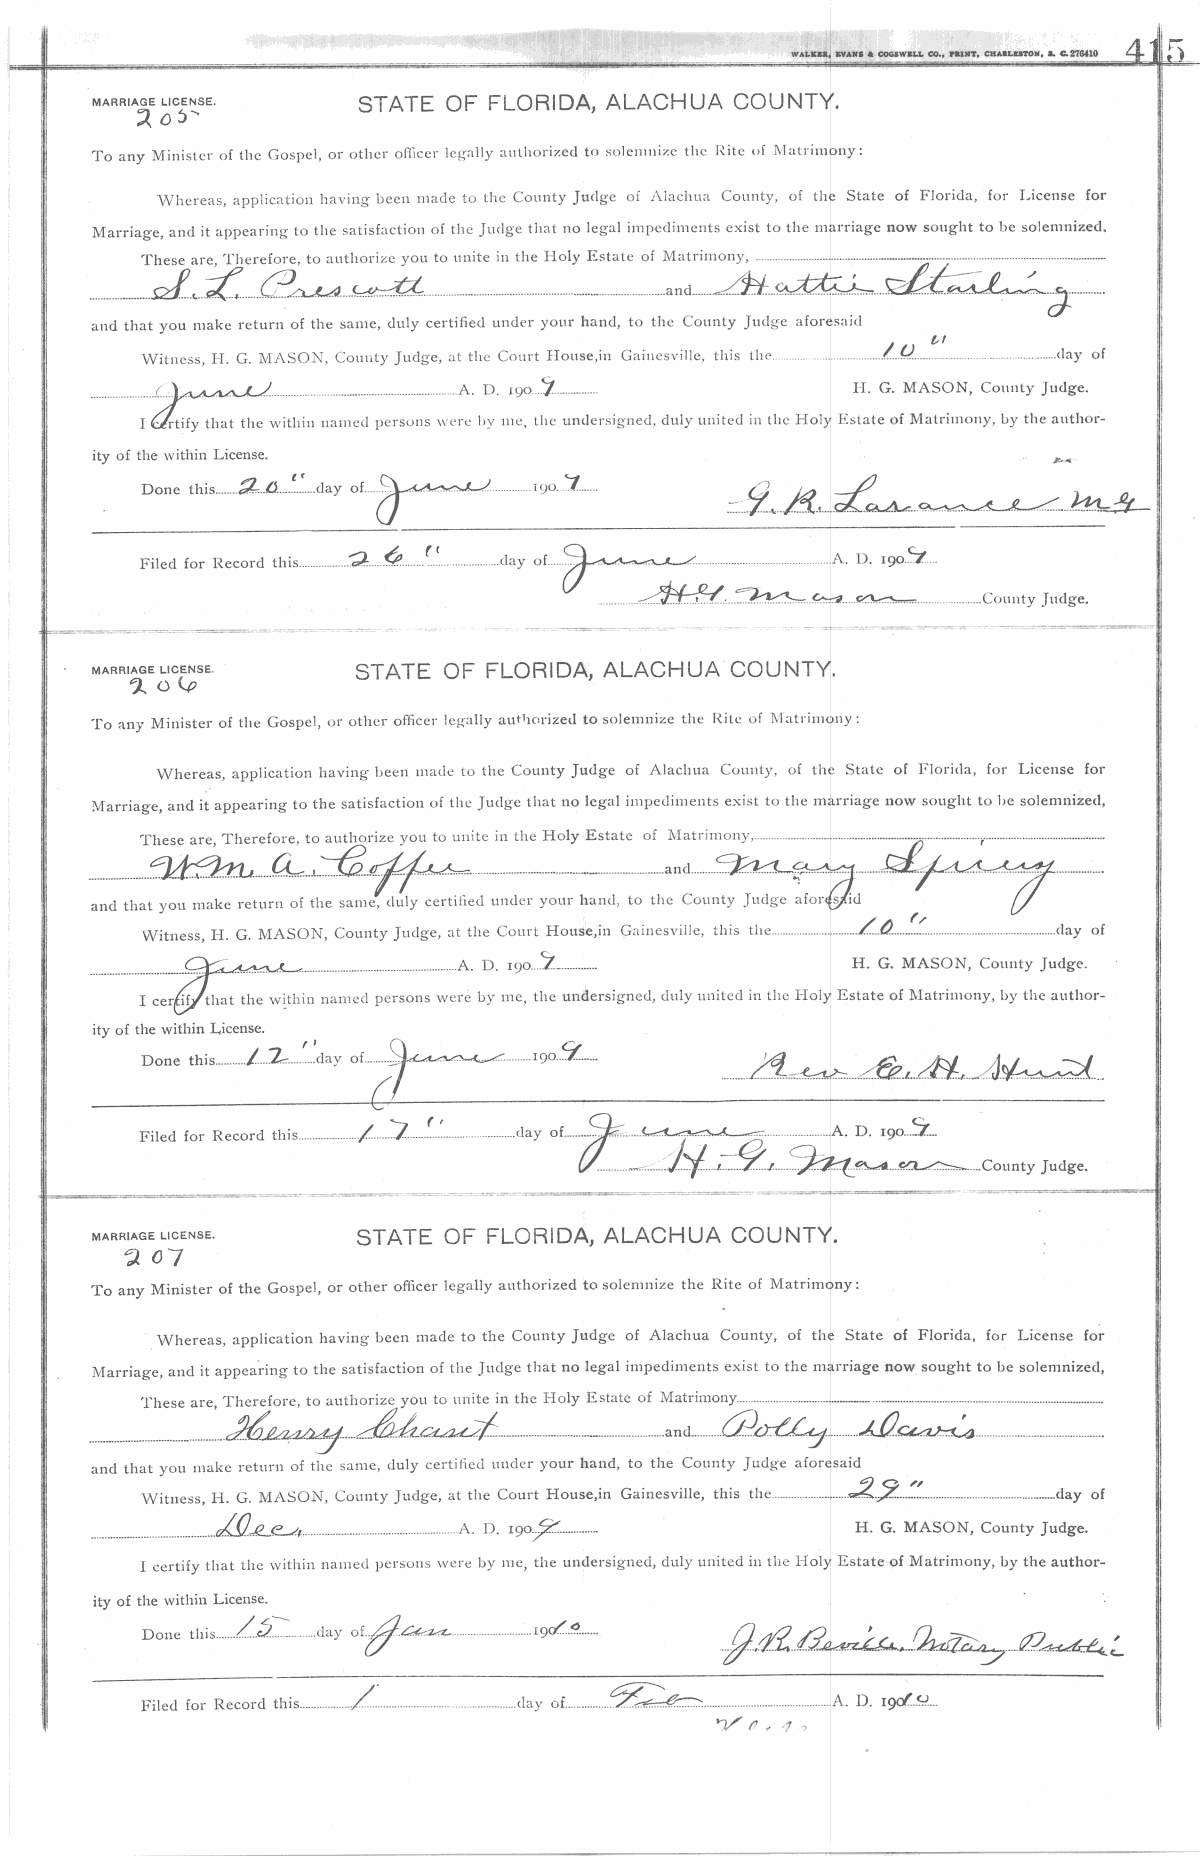 WALKER, EVANS & COGSWELL CO., PRINT, CHARLESTON, S. C. 276410 415
MARRIAGE LICENSE. STATE OF FLORIDA, ALACHUA COUNTY.
205
To any Minister of the Gospel, or other officer legally authorized to solemnize the Rite of Matrimony:
Whereas, application having been made to the County Judge of Alachua County, of the State of Florida, for License for
Marriage, and it appearing to the satisfaction of the Judge that no legal impediments exist to the marriage now sought to be solemnized.
These are, Therefore, to authorize you to unite in the Holy Estate of Matrimony,
S. L. Prescott and Hattie Starling
and that you make return of the same, duly certified under your hand, to the County Judge aforesaid
Witness, H. G. MASON, County Judge, at the Court House, in Gainesville, this the 10" day of
June A. D. 1909 H. G. MASON, County Judge.
I certify that the within named persons were by me, the undersigned, duly united in the Holy Estate of Matrimony, by the author-
ity of the within License.
Done this 20" day of June 1909
G. R. Larance MG
Filed for Record this 26" day of June A. D. 1909
H. G. Mason County Judge.
MARRIAGE LICENSE. STATE OF FLORIDA, ALACHUA COUNTY.
206
To any Minister of the Gospel, or other officer legally authorized to solemnize the Rite of Matrimony:
Whereas, application having been made to the County Judge of Alachua County, of the State of Florida, for License for
Marriage, and it appearing to the satisfaction of the Judge that no legal impediments exist to the marriage now sought to be solemnized,
These are, Therefore, to authorize you to unite in the Holy Estate of Matrimony,
W. M. A. Coffee and Mary Spiery
and that you make return of the same, duly certified under your hand, to the County Judge aforesaid
Witness, H. G. MASON, County Judge, at the Court House, in Gainesville, this the 10" day of
June A. D. 1909 H. G. MASON, County Judge.
I certify that the within named persons were by me, the undersigned, duly united in the Holy Estate of Matrimony, by the author-
ity of the within License.
Done this 12" day of June 1909 Rev E. H. Hunt
Filed for Record this 17" day of June A. D. 1909
H. G. Mason County Judge.
MARRIAGE LICENSE. STATE OF FLORIDA, ALACHUA COUNTY.
207
To any Minister of the Gospel, or other officer legally authorized to solemnize the Rite of Matrimony:
Whereas, application having been made to the County Judge of Alachua County, of the State of Florida, for License for
Marriage, and it appearing to the satisfaction of the Judge that no legal impediments exist to the marriage now sought to be solemnized,
These are, Therefore, to authorize you to unite in the Holy Estate of Matrimony
Henry Chant and Polly Davis
and that you make return of the same, duly certified under your hand, to the County Judge aforesaid
Witness, H. G. MASON, County Judge, at the Court House, in Gainesville, this the 29" day of
Dec. A. D. 1909 H. G. MASON, County Judge.
I certify that the within named persons were by me, the undersigned, duly united in the Holy Estate of Matrimony, by the author-
ity of the within License.
Done this 15 day of Jan 1910 J. R. Beville, Notary Public
Filed for Record this 1 day of Feb A. D. 1910